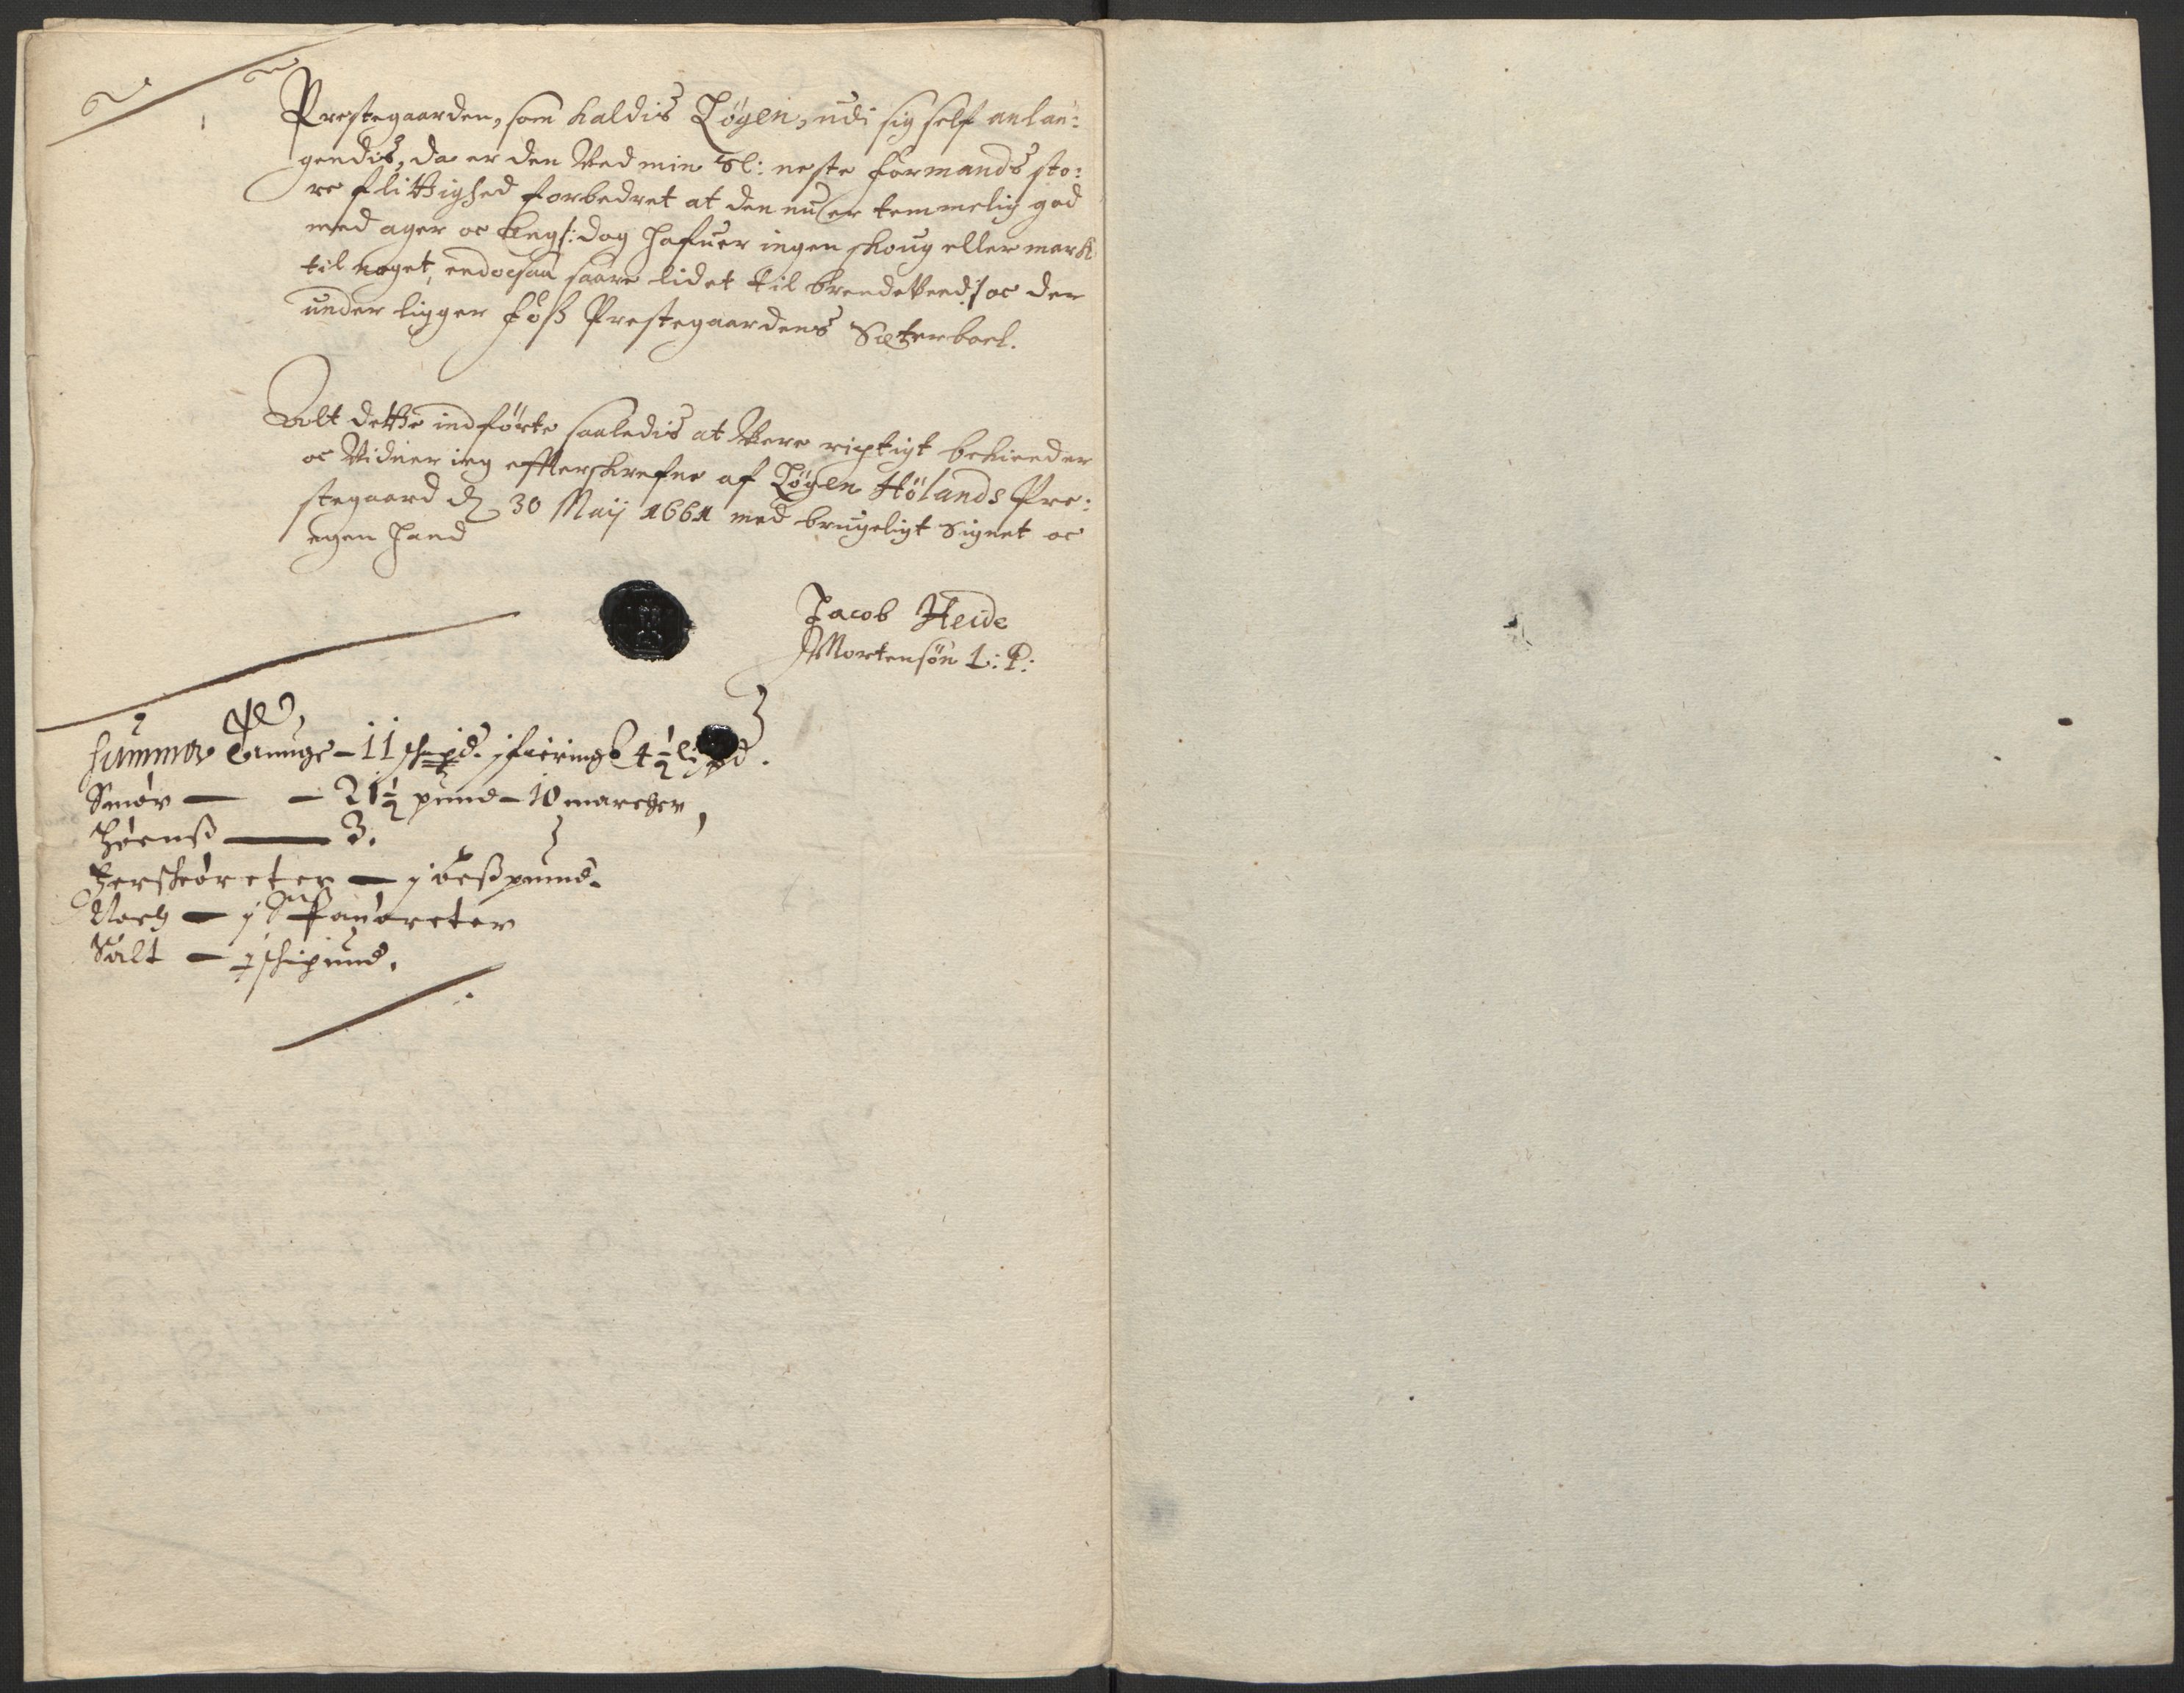 Prestegaarden, som kaldis Løgen, udi sig self anlan:
gendis, da er den Ved min Sl: neste formands sto:
re flittighed forbedret at den nu er temmelig god
med ager oc Eng /: dog hafuer ingen skoug eller mark
til noget, endocsaa saare lidet til brendeVeed :/ oc der
under ligger Foß Prestegaardens Sæterboel.
Alt dette indførte saaledis at Vere richtigt bekiender
oc Vidner ieg effterskrefne af Løgen Hölands Pre:
stegaard d. 30 Maij 1661 med brugeligt Signet oc
egen Hand
Jacob Heide
Mortensøn
Summa Tunge – 11 schipd. j fiering 4½ lispd.
Smør — — 21½ pund – 10 marcher,
— 3.
— j beßpund.
Noch — j
Salt — ½ schipund.